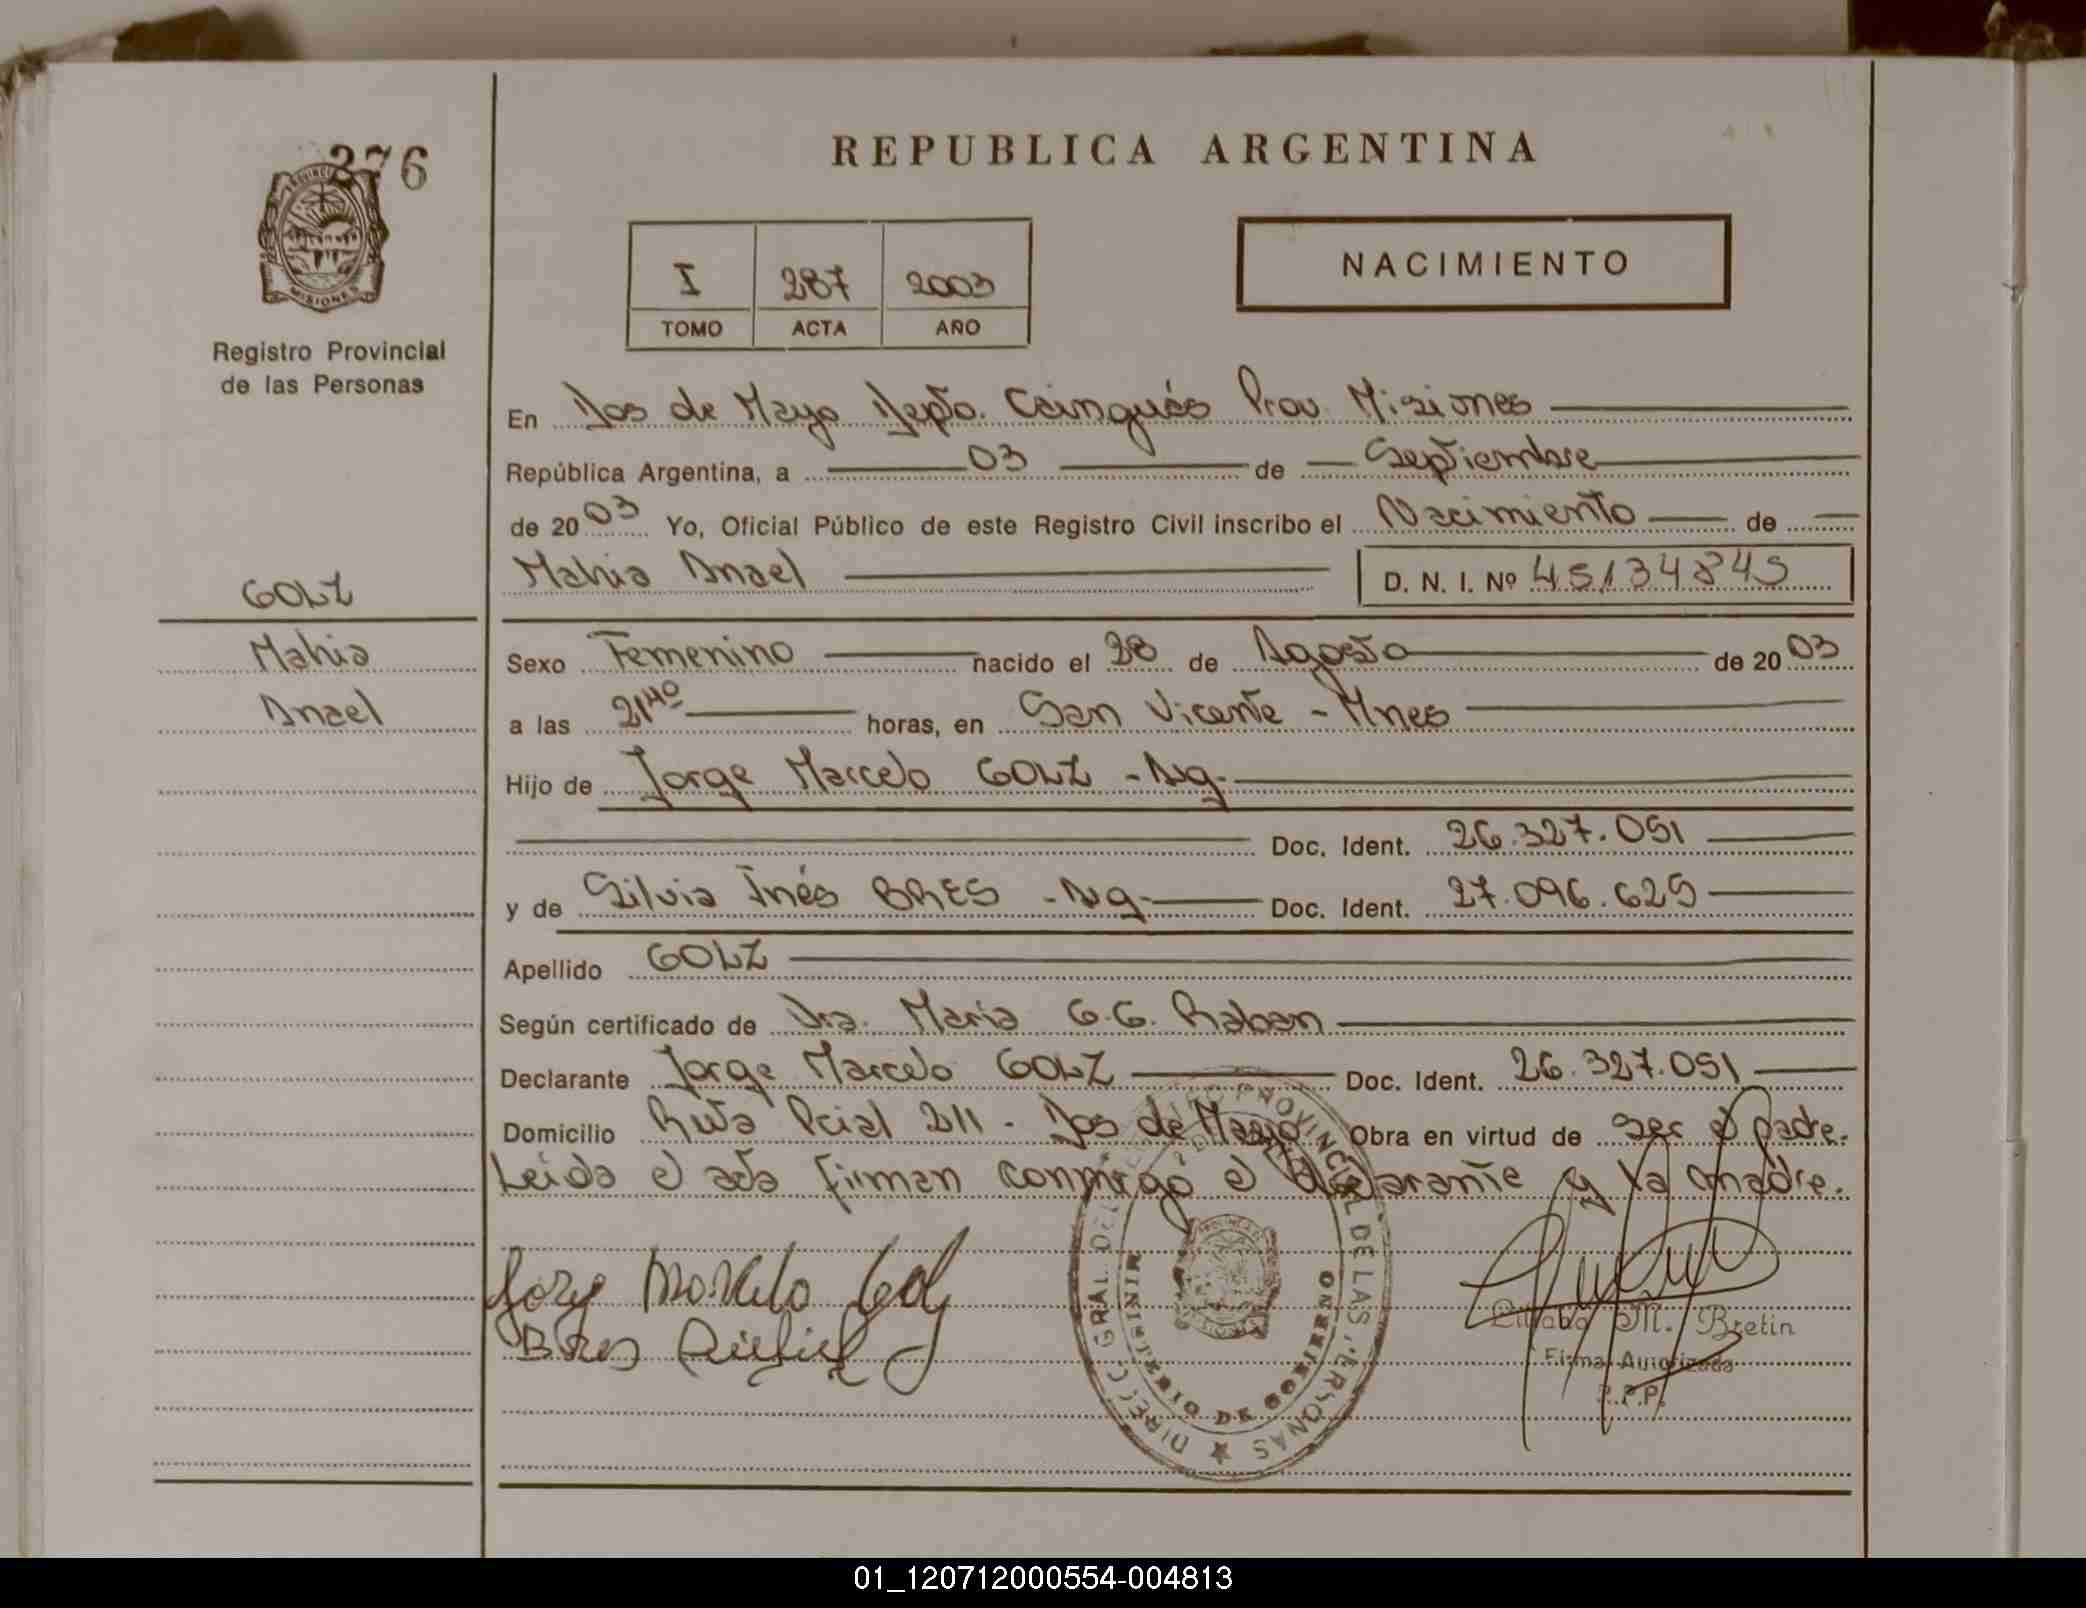 376
PROVINCIA
MISIONES
Registro Provincial
de las Personas
REPUBLICA ARGENTINA
I 287 2003
TOMO ACTA AÑO
NACIMIENTO
En Dos de Mayo Depto. Cainguás Prov. Misiones
República Argentina, a 03 de Septiembre
de 2003 Yo, Oficial Público de este Registro Civil inscribo el Nacimiento de
Mahia Anael D. N. I. Nº 45134845
GOLZ
Mahia
Anael
Sexo Femenino nacido el 28 de Agosto de 2003
a las 21⁴⁰ horas, en San Vicente - Mnes
Hijo de Jorge Marcelo GOLZ - Arg-
Doc. Ident. 26.327.051
y de Silvia Inés BRES - Arg- Doc. Ident. 27.096.625
Apellido GOLZ
Según certificado de Dra. Maria G.G. Raban
Declarante Jorge Marcelo GOLZ Doc. Ident. 26.327.051
Domicilio Ruta Pcial 211 - Dos de Mayo Obra en virtud de ser el padre.
Leída el acta firman conmigo el declarante y la madre.
Jorge Marcelo Golz
Bres Silvia
DIRECC. GRAL. DEL REGISTRO PROVINCIAL DE LAS PERSONAS
MINISTERIO DE GOBIERNO
M. Bretin
Firma Autorizada
R.P.P.
01_120712000554-004813